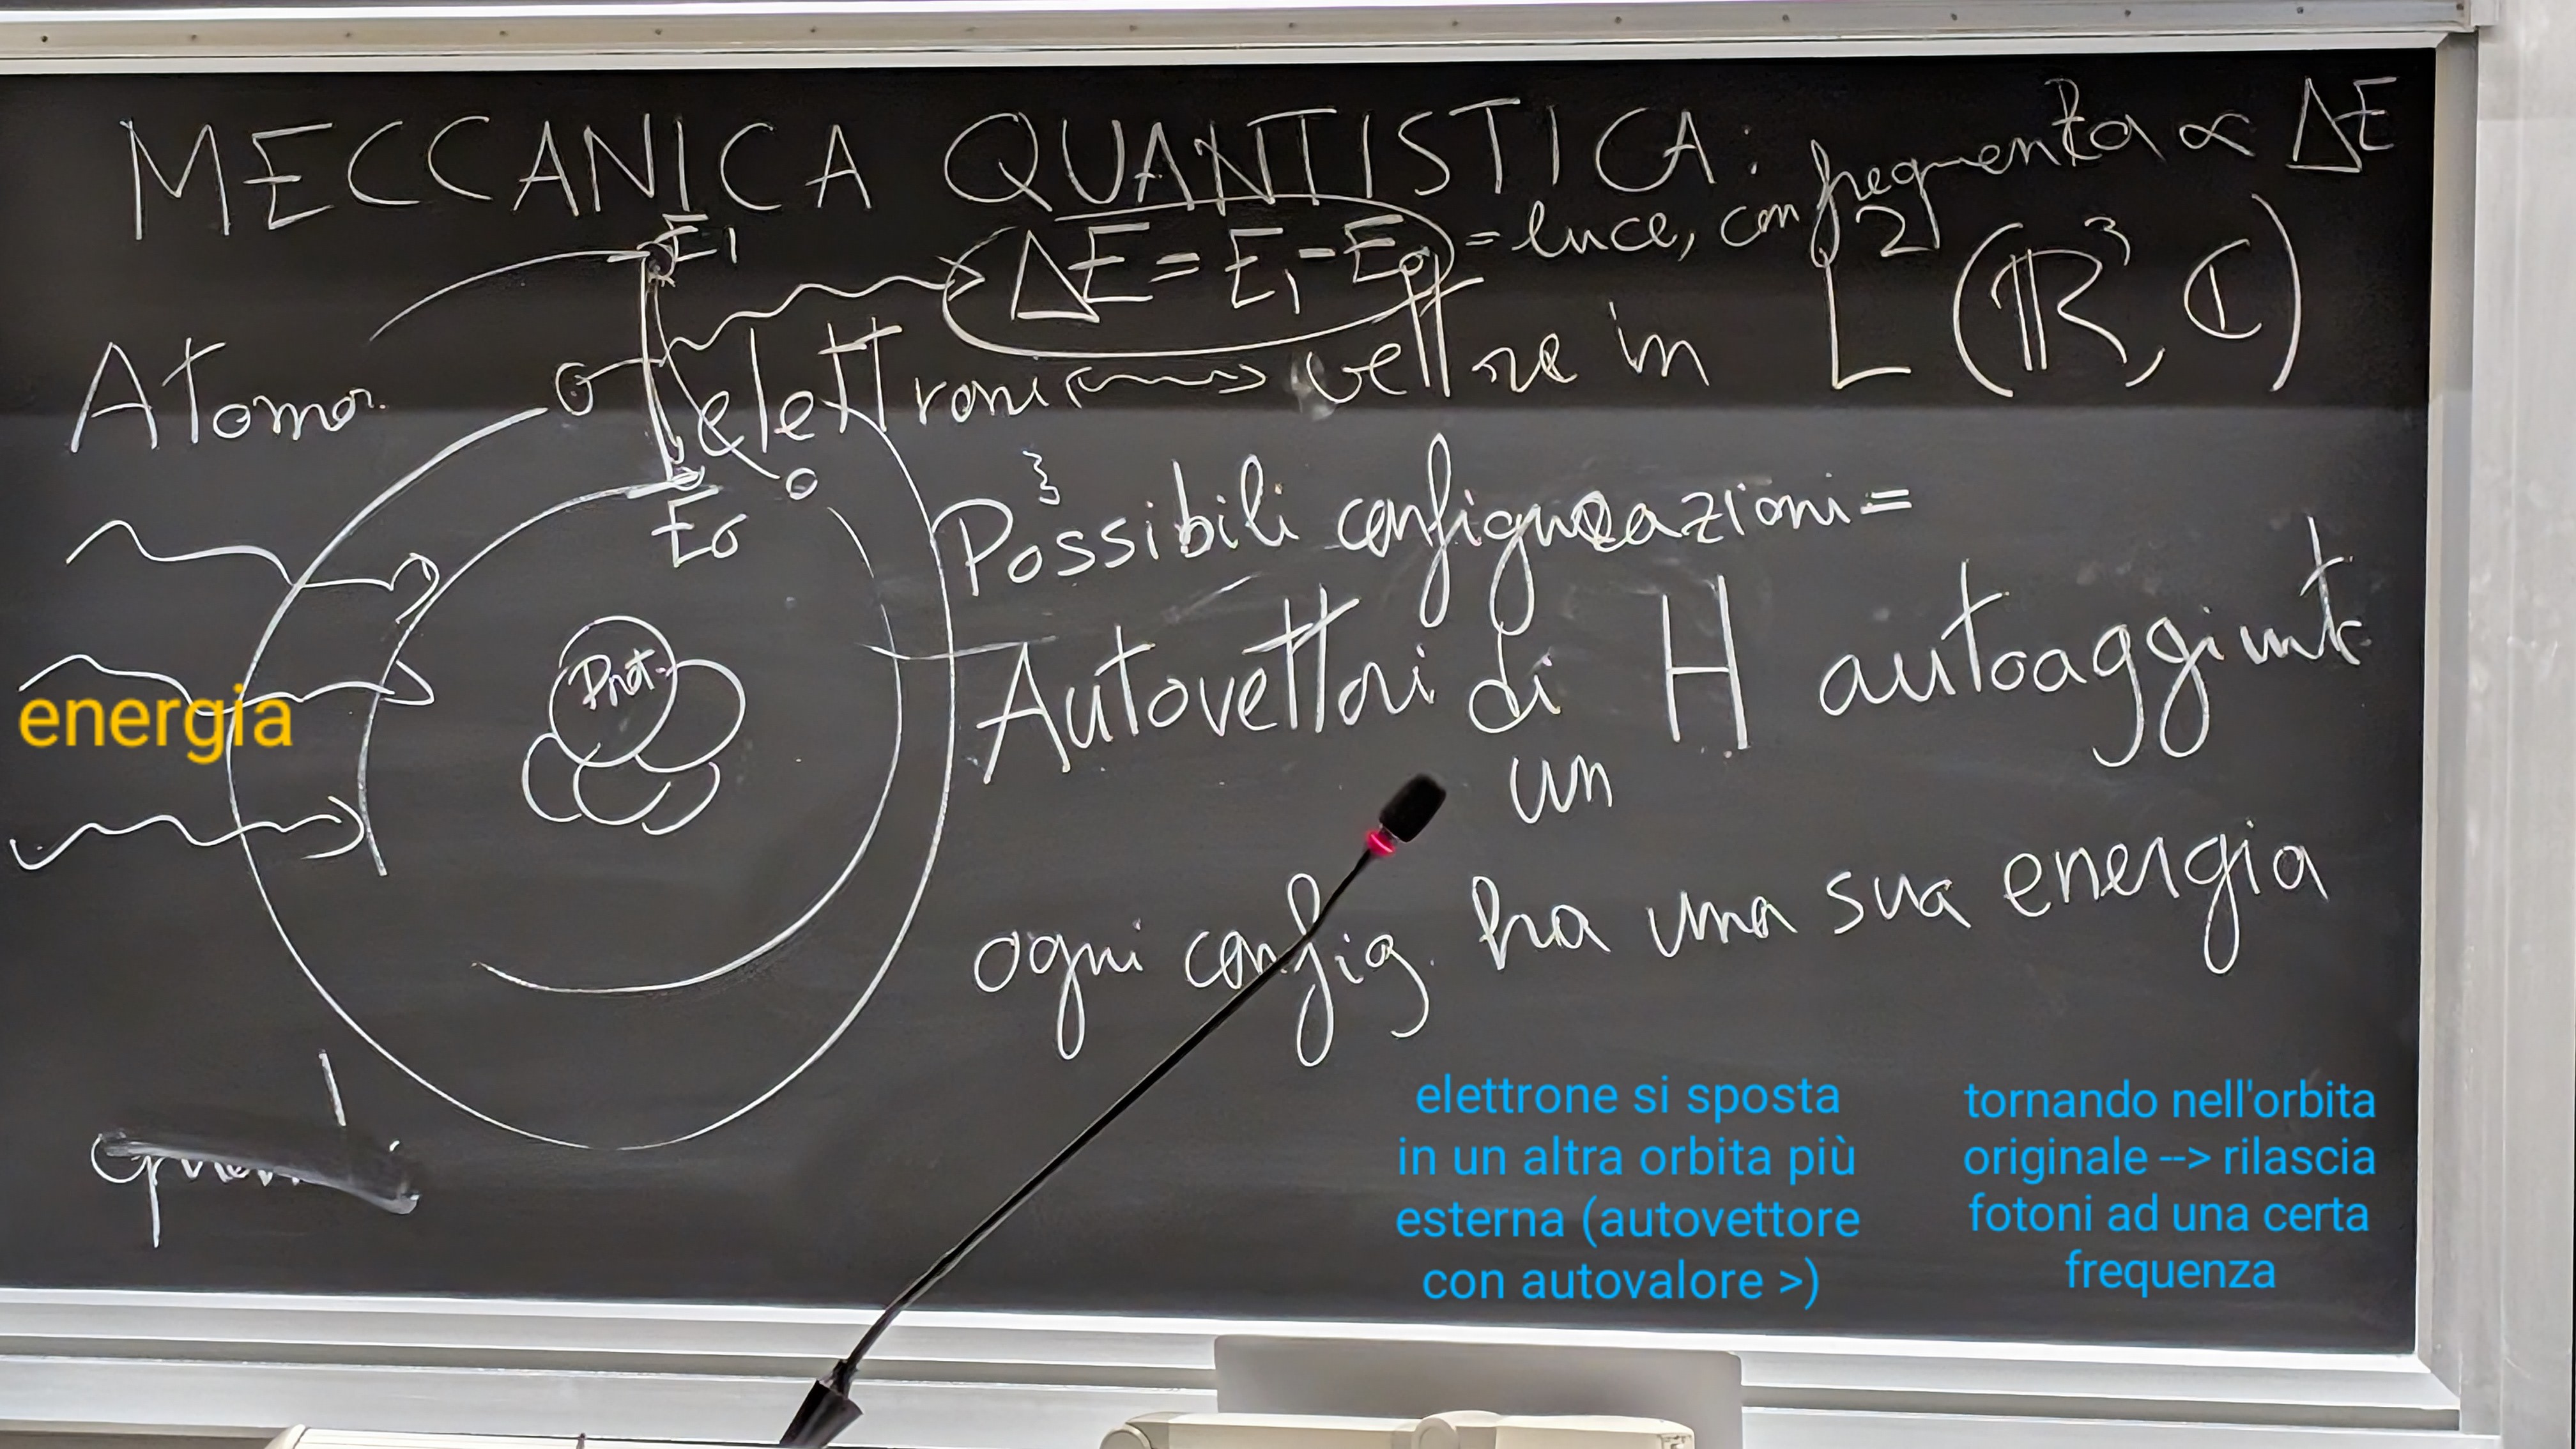 MECCANICA QUANTISTICA:
E₁
ΔE = E₁ - E₀ = luce, con frequenza ∝ ΔE
Atomo
elettroni ⟷ vettore in L² (ℝ³, ℂ)
E₀
Possibili configurazioni =
Prot.
Autovettori di un H autoaggiunt
energia
ogni config. ha una sua energia
elettrone si sposta
in un altra orbita più
esterna (autovettore
con autovalore >)
tornando nell'orbita
originale --> rilascia
fotoni ad una certa
frequenza